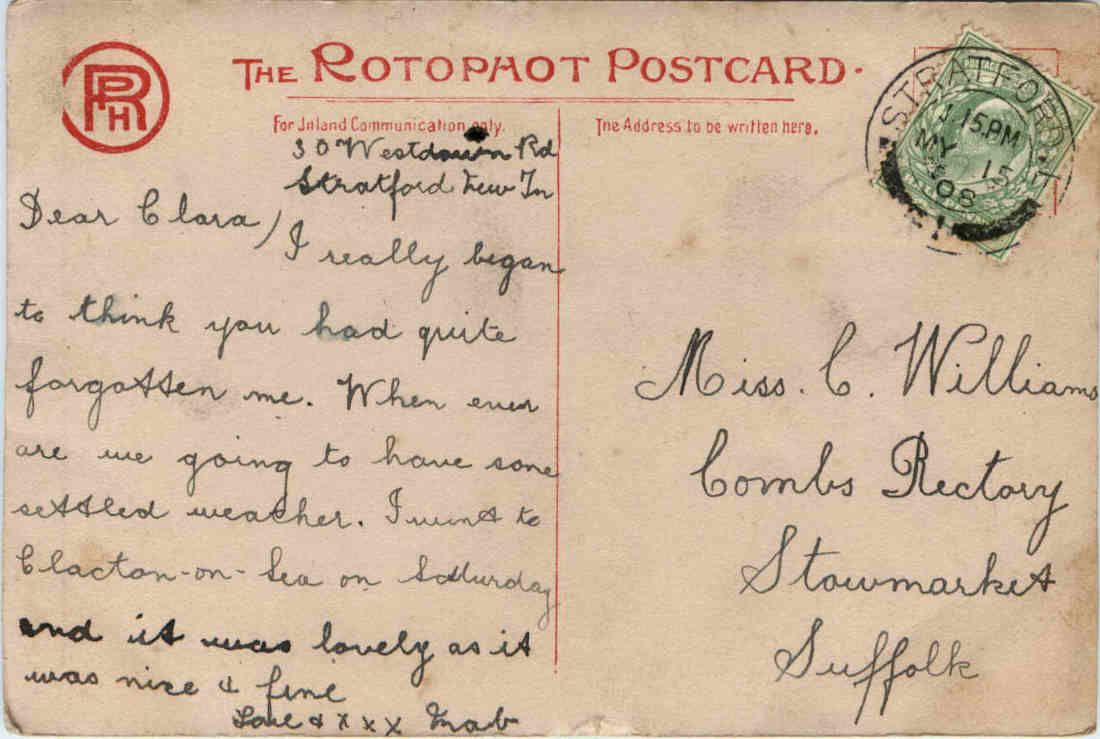 RPH
THE ROTOPHOT POSTCARD.
For Inland Communication only.
The Address to be written here.
STRATFORD. E
1.15.PM
MY 15
08
30 Westdown Rd
Stratford New Tn
Dear Clara/
I really began
to think you had quite
forgotten me. When ever
are we going to have some
settled weather. I went to
Clacton-on-Sea on Saturday
and it was lovely as it
was nice & fine
Love & x x x
Miss. C. Williams
Combs Rectory
Stowmarket
Suffolk